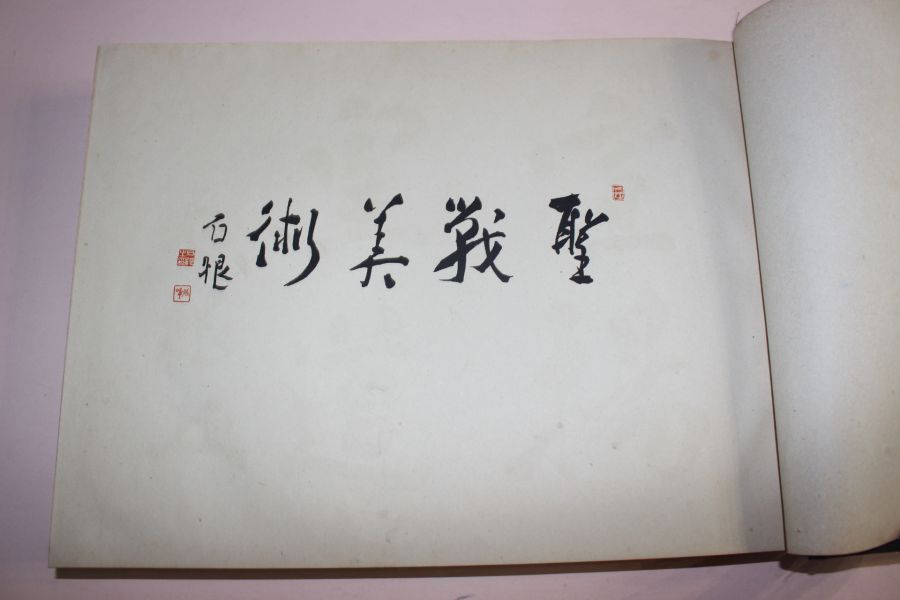 聖戰美術
石根